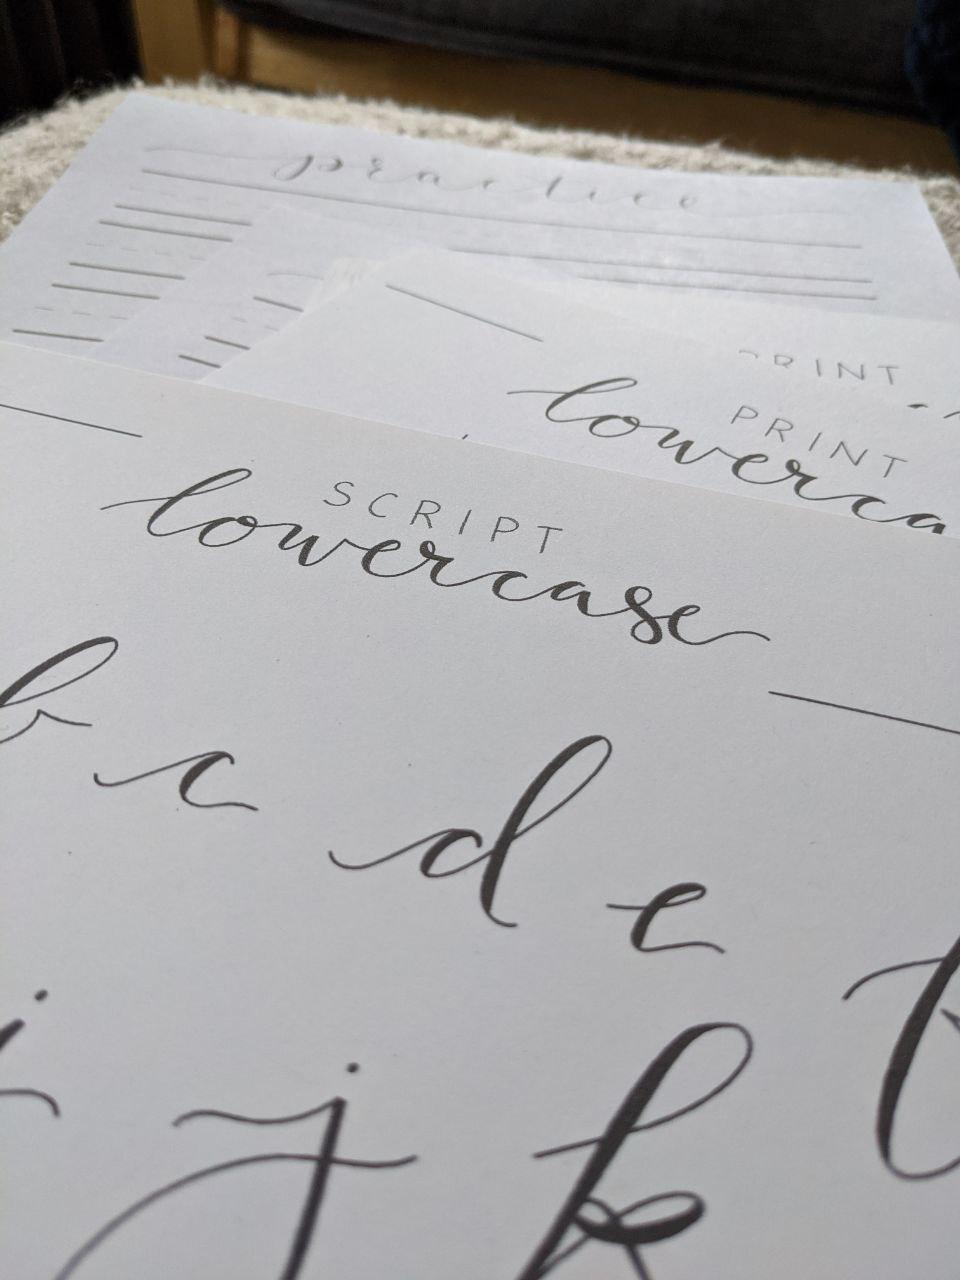 practice
PRINT
PRINT
lowerca
SCRIPT
lowercase
b c d e
i j k